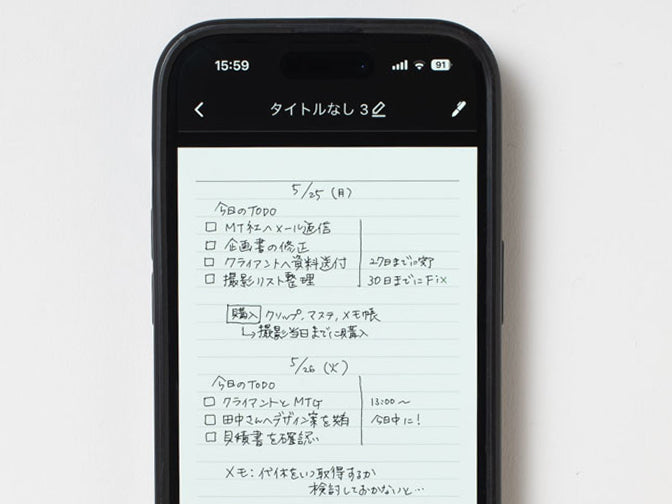 15:59 91
タイトルなし 3
5/25 (月)
今日のTODO
□ MT社へメール返信
□ 企画書の修正
□ クライアントへ資料送付 27日までに
□ 撮影リスト整理 30日までにFix
購入 クリップ、マステ、メモ帳
↳撮影当日までに購入
5/26 (火)
今日のTODO
□ クライアントとMTG 13:00〜
□ 田中さんへデザイン案を共有 今日中に!
□ 見積書を確認
メモ: 代休をいつ取得するか
検討しておかないと…